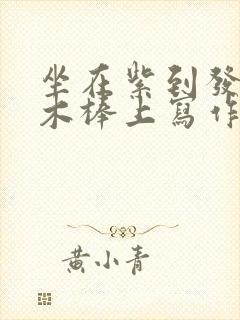 坐在紫到發
木棒上寫作
黃小青